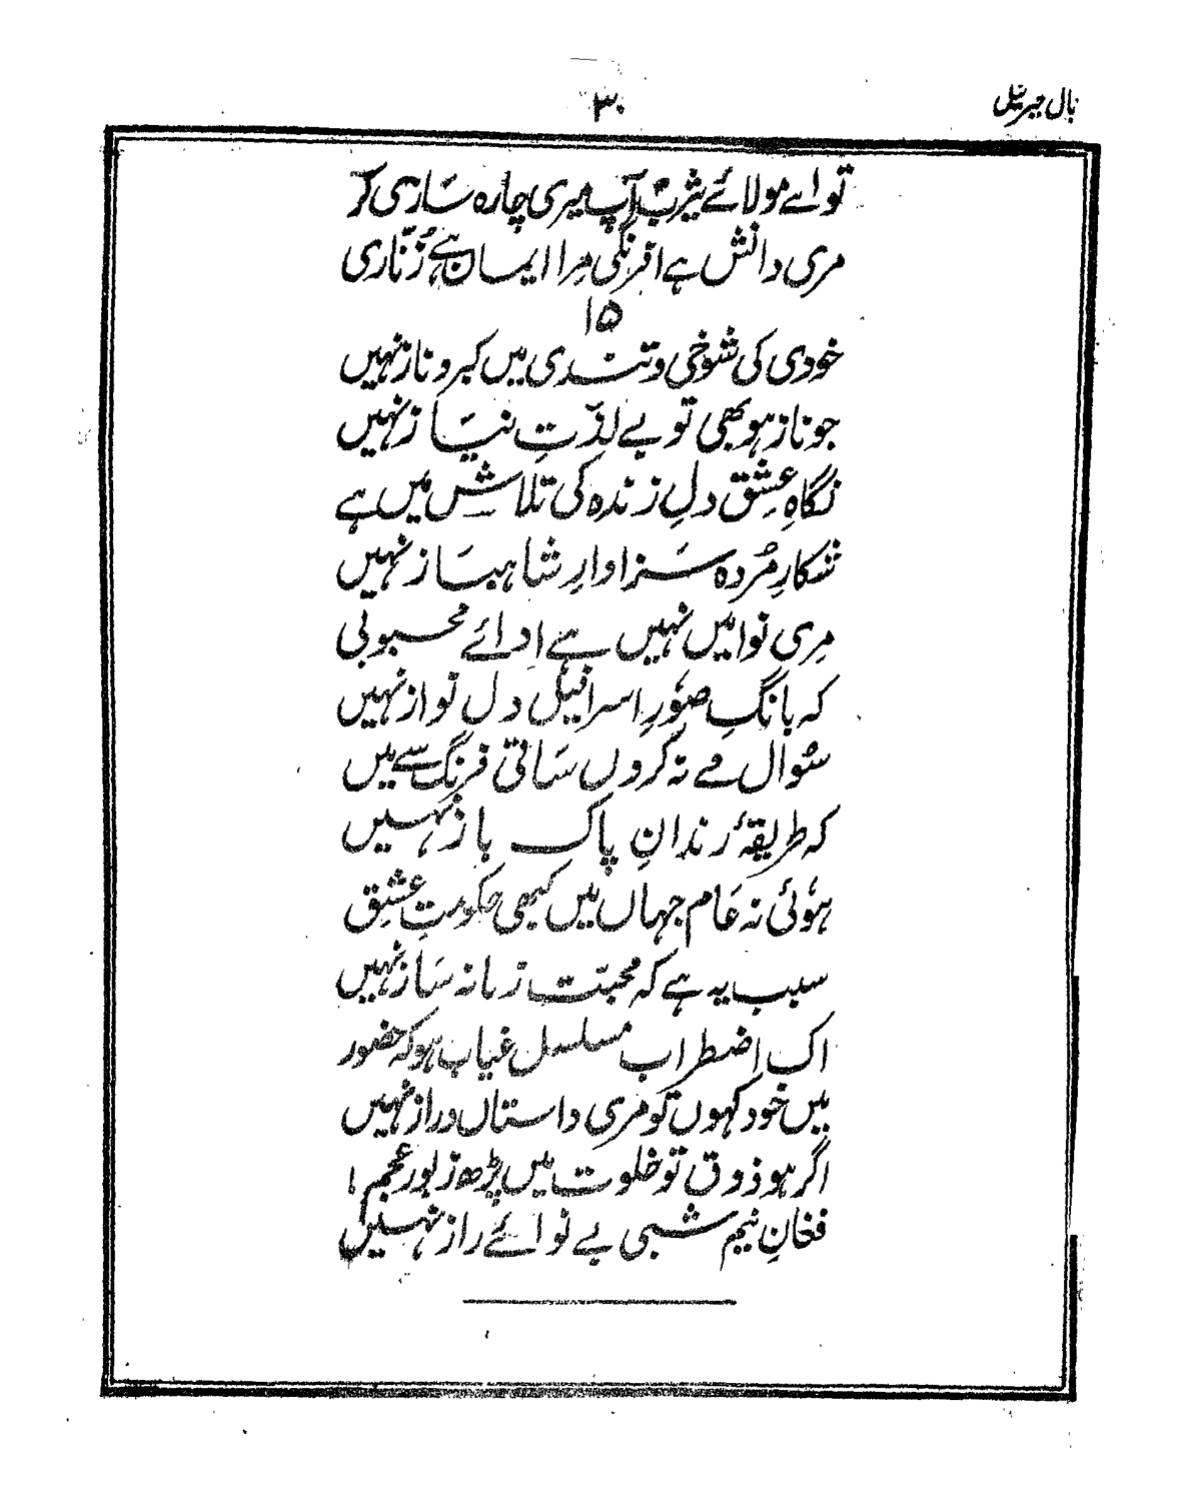 بال جبریل
۳۰
تو اے مولائے یثربؐ آپ میری چارہ سازی کر
مری دانش ہے افرنگی مِرا ایمان ہے زُنّاری
۱۵
خودی کی شوخی و تندی میں کبر و ناز نہیں
جو ناز ہو بھی تو بے لذّتِ نیاز نہیں
نگاہِ عِشق دلِ زندہ کی تلاش میں ہے
شکارِ مُردہ سزاوارِ شاہباز نہیں
مِری نوا میں نہیں ہے ادائے محبوبی
کہ بانگِ صُورِ اسرافیل دل نواز نہیں
سُوال مے نہ کروں ساقی فرنگ سے میں
کہ طریقۂ رندانِ پاک باز نہیں
ہُوئی نہ عام جہاں میں کبھی حکومتِ عشق
سبب یہ ہے کہ محبّت زمانہ ساز نہیں
اک اضطراب مسلسل غیاب ہو کہ حضور
میں خود کہوں تو مری داستاں دراز نہیں
اگر ہو ذوق تو خلوت میں پڑھ زبور عجم!
فغانِ نیم شبی بے نوائے راز نہیں